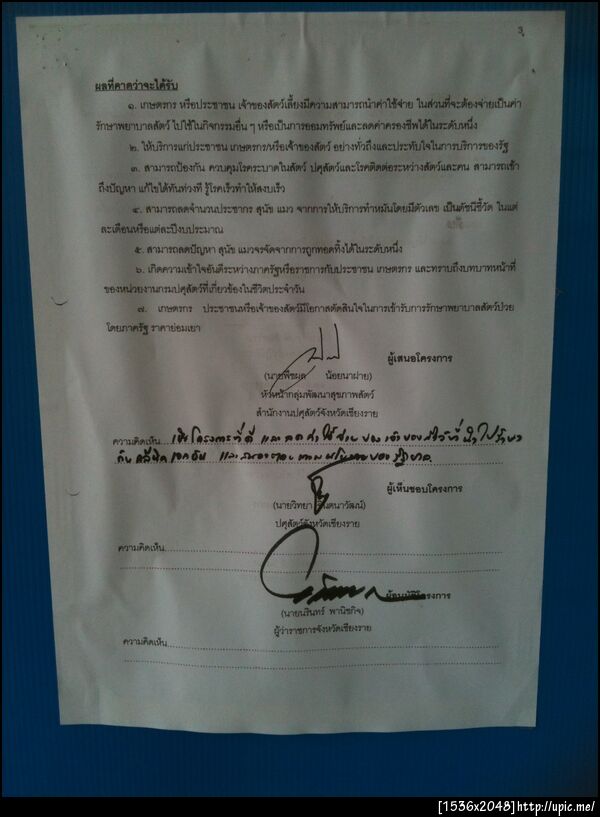 3
ผลที่คาดว่าจะได้รับ
๑. เกษตรกร หรือประชาชน เจ้าของสัตว์เลี้ยงมีความสามารถนำค่าใช้จ่าย ในส่วนที่จะต้องจ่ายเป็นค่า
รักษาพยาบาลสัตว์ ไปใช้ในกิจกรรมอื่น ๆ หรือเป็นการออมทรัพย์และลดค่าครองชีพได้ในระดับหนึ่ง
๒. ให้บริการแก่ประชาชน เกษตรกร/หรือเจ้าของสัตว์ อย่างทั่วถึงและประทับใจในการบริการของรัฐ
๓. สามารถป้องกัน ควบคุมโรคระบาดในสัตว์ ปศุสัตว์และโรคติดต่อระหว่างสัตว์และคน สามารถเข้า
ถึงปัญหา แก้ไขได้ทันท่วงที รู้โรคเร็วทำให้สงบเร็ว
๔. สามารถลดจำนวนประชากร สุนัข แมว จากการให้บริการทำหมันโดยมีตัวเลข เป็นดัชนีชี้วัด ในแต่
ละเดือนหรือแต่ละปีงบประมาณ
๕. สามารถลดปัญหา สุนัข แมวจรจัดจากการถูกทอดทิ้งได้ในระดับหนึ่ง
๖. เกิดความเข้าใจอันดีระหว่างภาครัฐหรือราชการกับประชาชน เกษตรกร และทราบถึงบทบาทหน้าที่
ของหน่วยงานกรมปศุสัตว์ที่เกี่ยวข้องในชีวิตประจำวัน
๗. เกษตรกร ประชาชนหรือเจ้าของสัตว์มีโอกาสตัดสินใจในการเข้ารับการรักษาพยาบาลสัตว์ป่วย
โดยภาครัฐ ราคาย่อมเยา
ผู้เสนอโครงการ
(นายพืชผล น้อยนาฝาย)
หัวหน้ากลุ่มพัฒนาสุขภาพสัตว์
สำนักงานปศุสัตว์จังหวัดเชียงราย
ความคิดเห็น... เป็นโครงการที่ดี และลดค่าใช้จ่ายของเจ้าของสัตว์ที่นำไปรักษา
กับคลีนิคเอกชน และสนองตอบตามนโยบายของรัฐบาล
ผู้เห็นชอบโครงการ
(นายวิทยา
ปศุสัตว์จังหวัดเชียงราย
ความคิดเห็น
ผู้อนุมัติโครงการ
(นายนรินทร์ พานิชกิจ)
ผู้ว่าราชการจังหวัดเชียงราย
ความคิดเห็น
[1536x2048]http://upic.me/